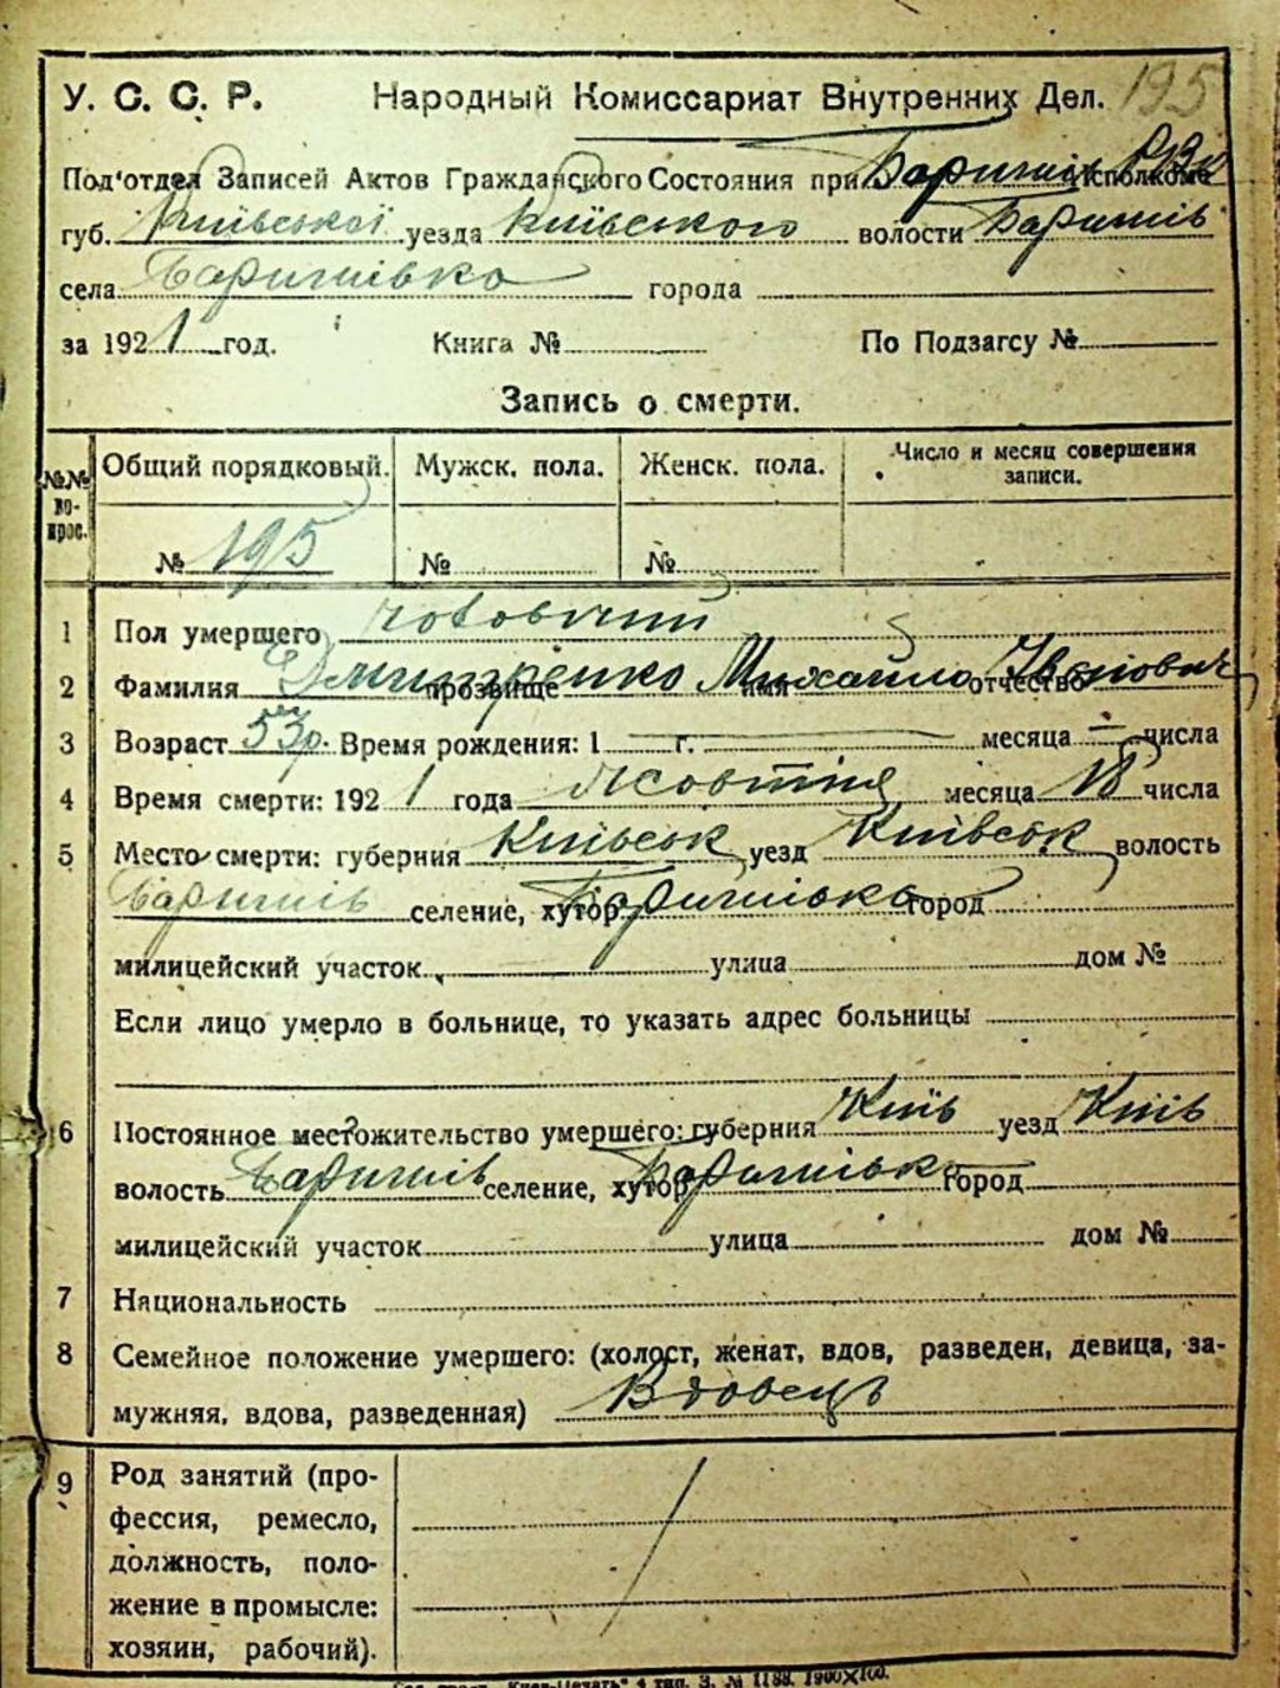 195
У. С. С. Р. Народный Комиссариат Внутренних Дел.
Под'отдел Записей Актов Гражданского Состояния при Баришів РВК исполкоме
губ. Київської уезда Київського волости Баришів
села Баришівка города
за 1921 год. Книга № По Подзагсу №
Запись о смерти.
№№ во- прос. Общий порядковый. Мужск. пола. Женск. пола. Число и месяц совершения записи.
№ 195 № №
1 Пол умершего чоловичий
2 Фамилия Дмитренко прозвище имя Михайло отчество Іванович
3 Возраст 53 р. Время рождения: 1 — г. — месяца — числа
4 Время смерти: 1921 года жовтня месяца 18 числа
5 Место смерти: губерния Київськ уезд Київськ волость
Баришів селение, хутор Баришівка город
милицейский участок улица дом №
Если лицо умерло в больнице, то указать адрес больницы
6 Постоянное местожительство умершего: губерния Київ уезд Київ
волость Баришів селение, хутор Баришівка город
милицейский участок улица дом №
7 Национальность
8 Семейное положение умершего: (холост, женат, вдов, разведен, девица, за-
мужняя, вдова, разведенная) Вдовець
9 Род занятий (про-
фессия, ремесло,
должность, поло-
жение в промысле:
хозяин, рабочий).
4 тип. З. № 1188. 1900×100.